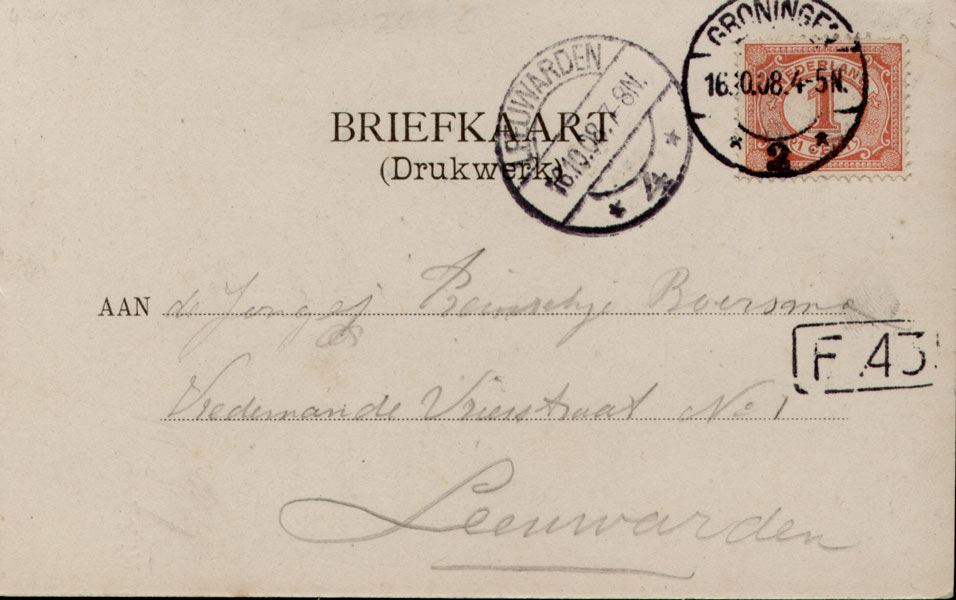 GRONINGEN
16.10.08.4-5N.
2
NEDERLAND
1
CENT
LEEUWARDEN
16.10.08.7-8N.
4
BRIEFKAART
(Drukwerk)
AAN de Jongej Reinschje Boersma
F 43
Vredemande Vriesstraat No 1
Leeuwarden